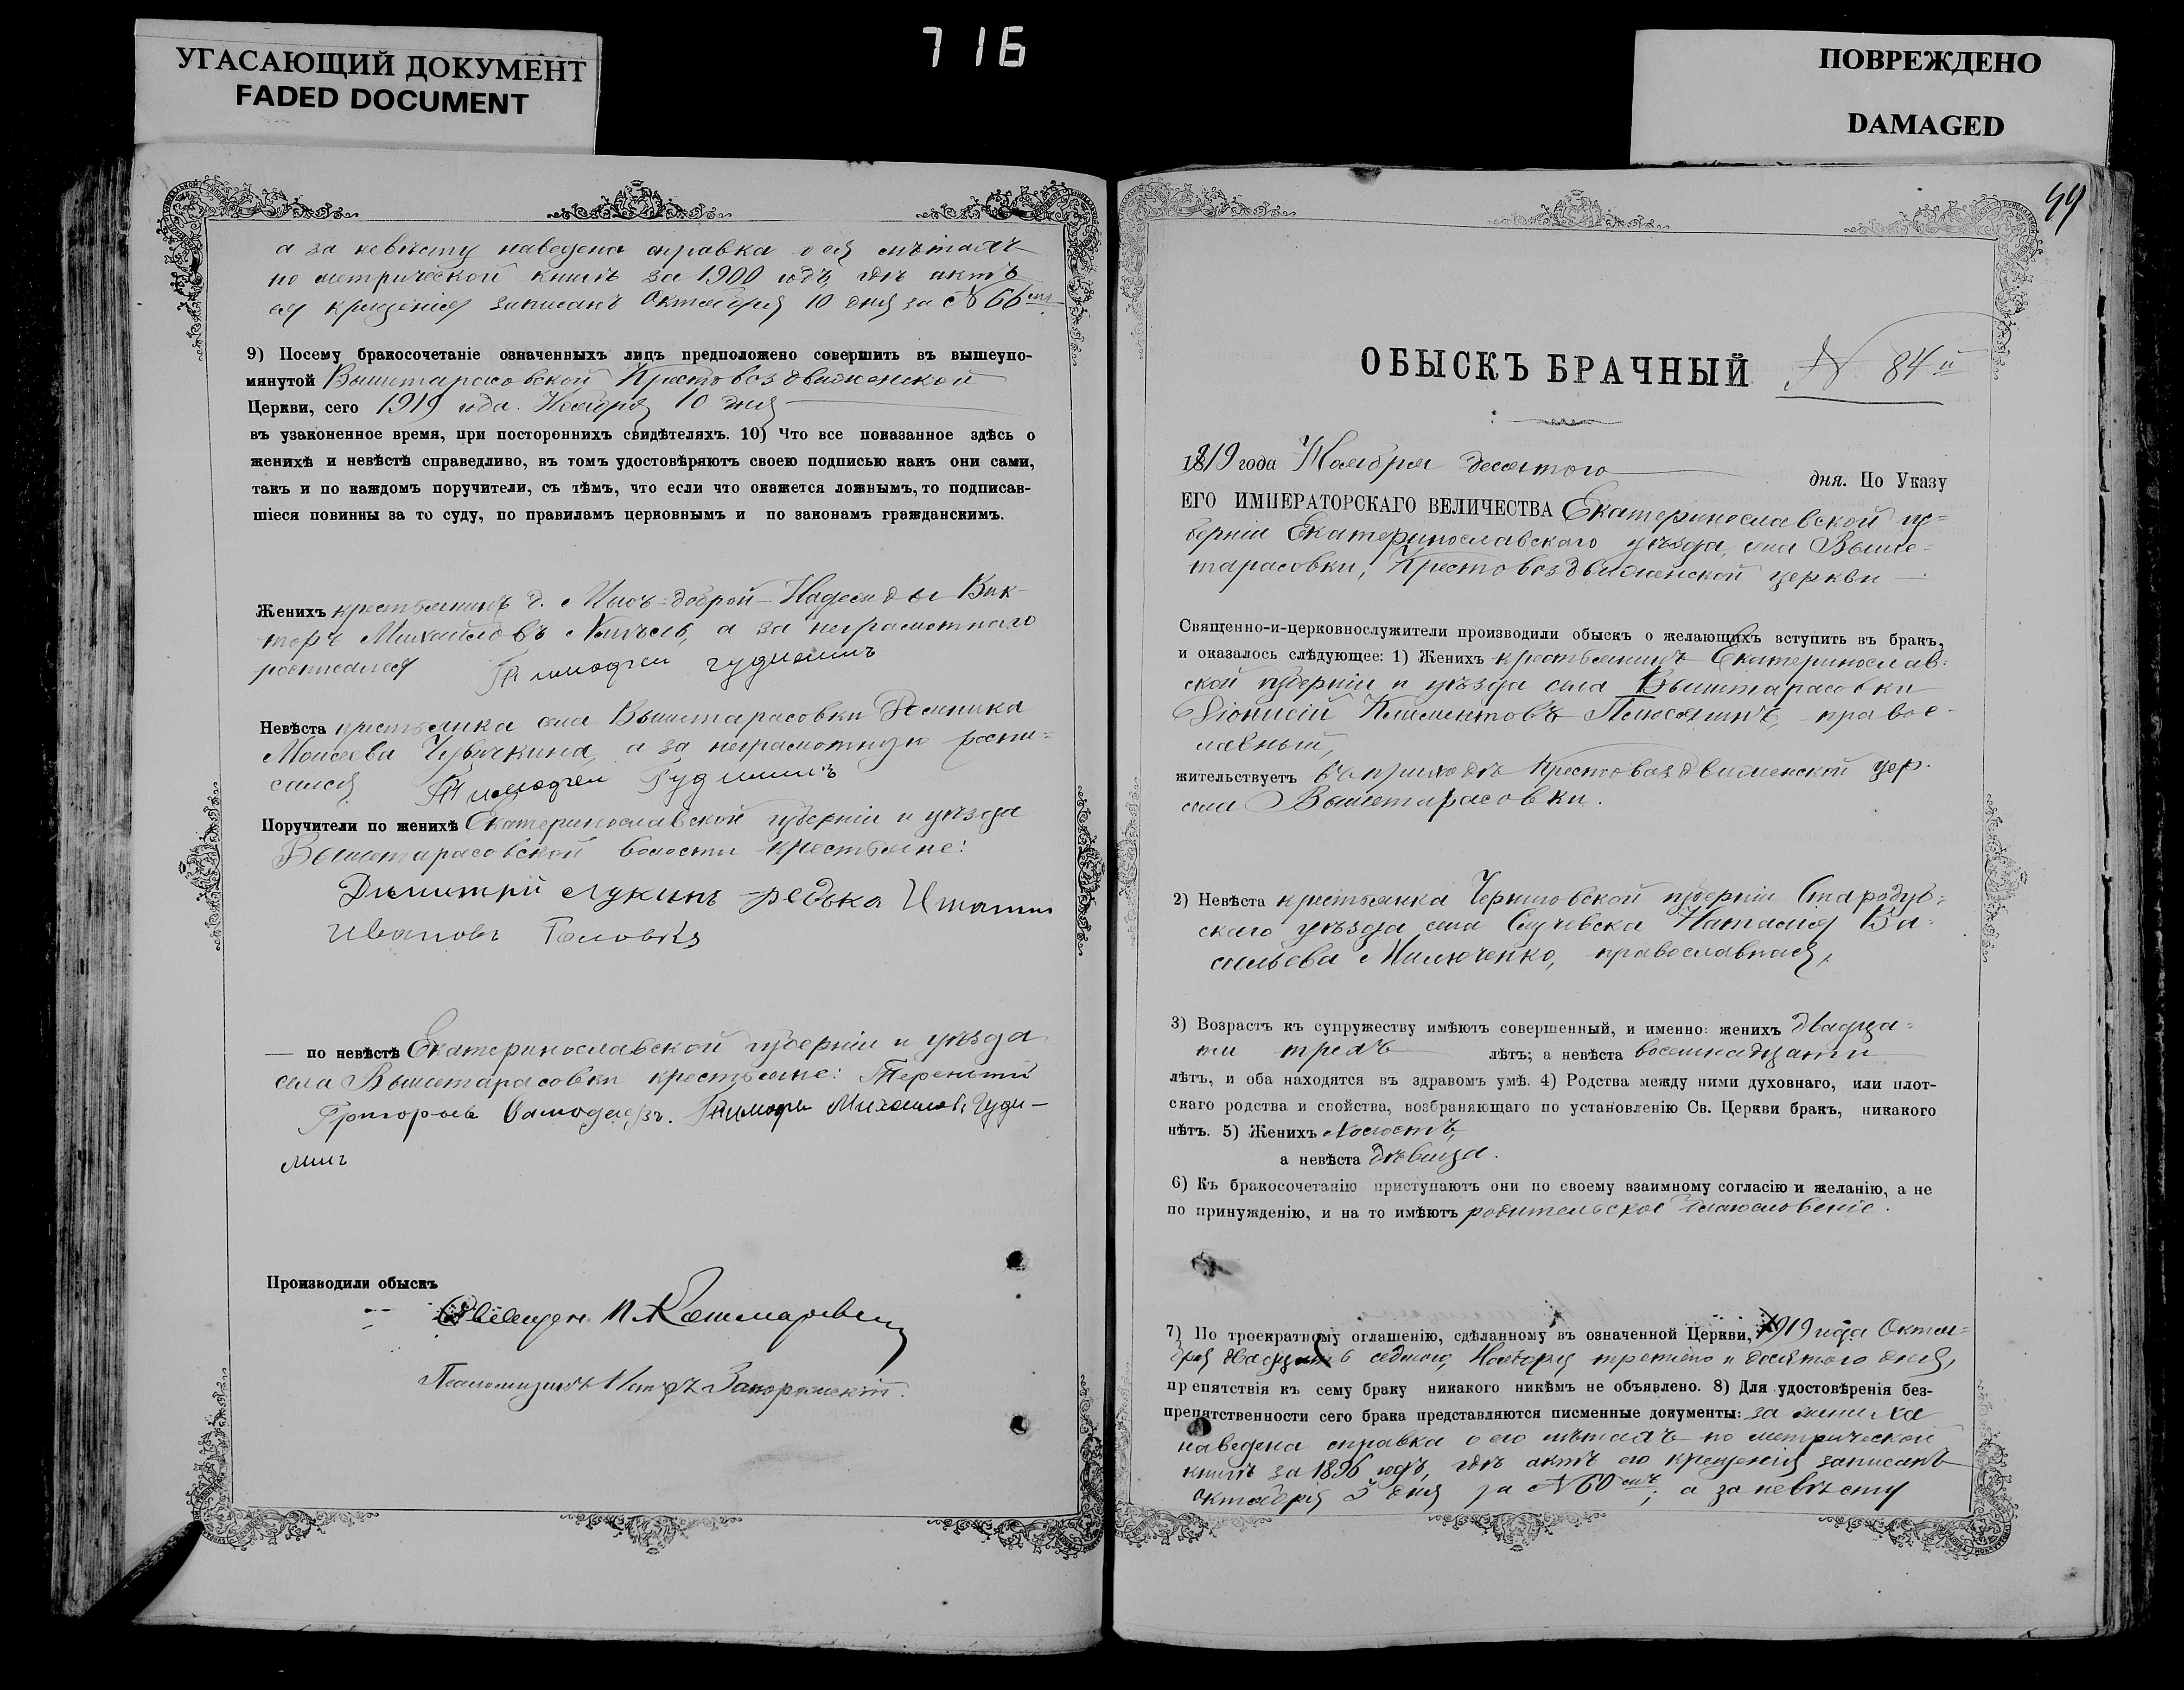 716
УГАСАЮЩИЙ ДОКУМЕНТ
FADED DOCUMENT
ПОВРЕЖДЕНО
DAMAGED
а за невѣсту наведена справка о ея лѣтахъ
по метрической книгѣ за 1900 годъ, гдѣ актъ
ея крещенія записанъ Октября 10 дня за № 66
9) Посему бракосочетаніе означенныхъ лицъ предположено совершить въ вышеупо-
мянутой Вышетарасовской Крестовоздвиженской
Церкви, сего 1919 года. Ноября 10 дня
въ узаконенное время, при постороннихъ свидѣтеляхъ. 10) Что все показанное здѣсь о
женихѣ и невѣстѣ справедливо, въ томъ удостовѣряютъ своею подписью какъ они сами,
такъ и по каждомъ поручители, съ тѣмъ, что если что окажется ложнымъ, то подписав-
шіеся повинны за то суду, по правиламъ церковнымъ и по законамъ гражданскимъ.
Женихъ крестьянинъ д. Мысъ-Доброй-Надежды Вик-
торъ Михайловъ а за неграмотнаго
росписался Тимофей Гудиминъ
Невѣста крестьянка села Вышетарасовки Доминика
Моисеева а за неграмотную роспи-
сался Тимофей Гудиминъ
Поручители по женихѣ Екатеринославской губерніи и уѣзда
Вышетарасовской волости крестьяне:
Димитрій Лукинъ Редька
Ивановъ Головко
— по невѣстѣ Екатеринославской губерніи и уѣзда
села Вышетарасовки крестьяне: Терентій
Тимофей Михаиловъ Гуди-
минъ
Производили обыскъ
Священ.
Псаломщикъ Петръ Запорожскій.
49
ОБЫСКЪ БРАЧНЫЙ № 84й
1919 года Ноября десятого дня. По Указу
ЕГО ИМПЕРАТОРСКАГО ВЕЛИЧЕСТВА Екатеринославской гу-
берніи Екатеринославскаго уѣзда, села Выше-
тарасовки, Крестовоздвиженской церкви
Священно-и-церковнослужители производили обыскъ о желающихъ вступить въ бракъ,
и оказалось слѣдующее: 1) Женихъ крестьянинъ Екатеринослав-
ской губерніи и уѣзда села Вышетарасовки
Діонисій Климентовъ православ-
лавный,
жительствуетъ въ приходѣ Крестовоздвиженской цер.
села Вышетарасовки.
2) Невѣста крестьянка Черниговской губерніи Стародуб-
скаго уѣзда села Случевска Наталія Ва-
сильева Милюченко, православная,
3) Возрастъ къ супружеству имѣютъ совершенный, и именно: женихъ двадца-
ти трехъ лѣтъ; а невѣста восемнадцати
лѣтъ, и оба находятся въ здравомъ умѣ. 4) Родства между ними духовнаго, или плот-
скаго родства и свойства, возбраняющаго по установленію Св. Церкви бракъ, никакого
нѣтъ. 5) Женихъ холостъ,
а невѣста дѣвица.
6) Къ бракосочетанію приступаютъ они по своему взаимному согласію и желанію, а не
по принужденію, и на то имѣютъ родительское благословеніе.
7) По троекратному оглашенію, сдѣланному въ означенной Церкви, 1919 года Октя-
бря двадцать седмого, Ноября третьяго и десятого дня,
препятствія къ сему браку никакого никѣмъ не объявлено. 8) Для удостовѣренія без-
препятственности сего брака представляются писменные документы: за жениха
наведена справка о его лѣтахъ по метрической
книгѣ за 1896 годъ, гдѣ актъ его крещенія записанъ
Октября 3 дня за № 60; а за невѣсту